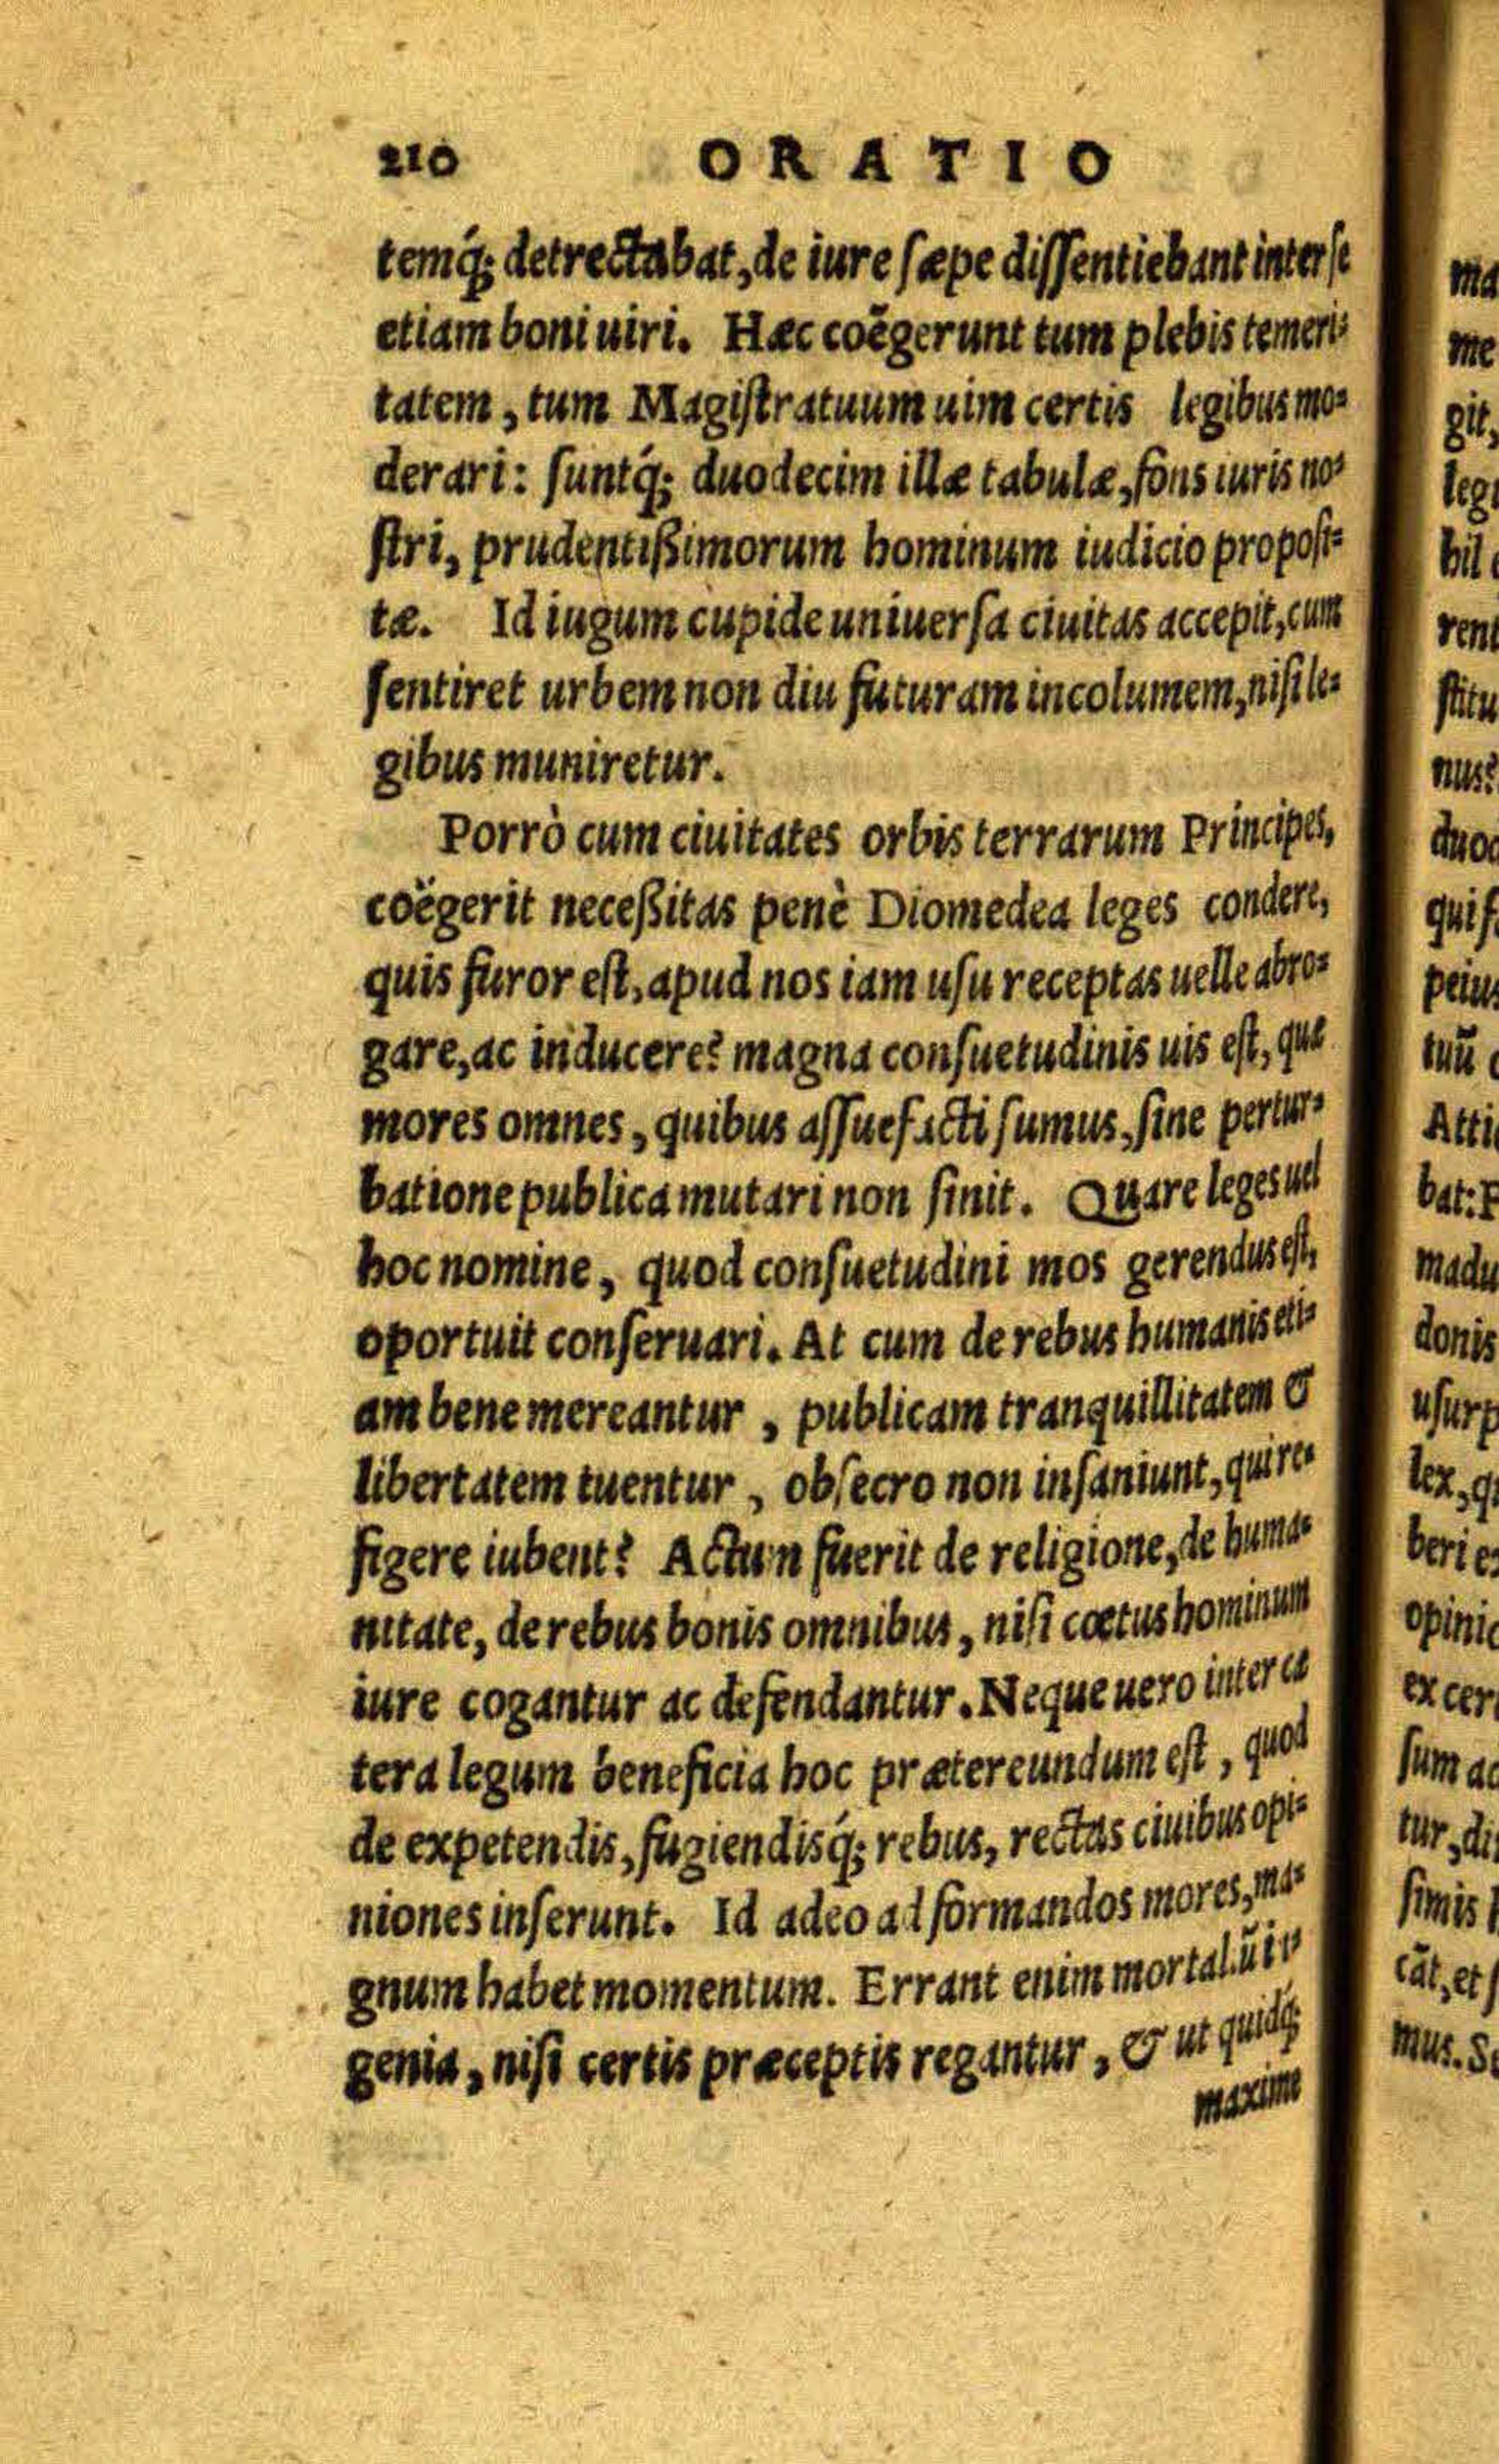 210 ORATIO
temq́; detrectabat, de iure sæpe dissentiebant inter se
etiam boni uiri. Hæc coẽgerunt tum plebis temeri-
tatem, tum Magistratuum uim certis legibus mo-
derari: suntq́; duodecim illæ tabulæ, fons iuris no-
stri, prudentißimorum hominum iudicio proposi-
tæ. Id iugum cupide uniuersa ciuitas accepit, cum
sentiret urbem non diu futuram incolumem, nisi le-
gibus muniretur.
Porrò cum ciuitates orbis terrarum Principes,
coëgerit neceßitas penè Diomedea leges condere,
quis furor est, apud nos iam usu receptas uelle abro-
gare, ac inducere? magna consuetudinis uis est, quæ
mores omnes, quibus assuefacti sumus, sine pertur-
batione publica mutari non sinit. Quare leges uel
hoc nomine, quod consuetudini mos gerendus est,
oportuit conseruari. At cum de rebus humanis eti-
am bene mereantur, publicam tranquillitatem &
libertatem tuentur, obsecro non insaniunt, qui re-
figere iubent? Actum fuerit de religione, de huma-
nitate, de rebus bonis omnibus, nisi cœtus hominum
iure cogantur ac defendantur. Neque uero inter cæ
tera legum beneficia hoc prætereundum est, quod
de expetendis, fugiendisq́; rebus, rectas ciuibus opi-
niones inserunt. Id adeo ad formandos mores, ma-
gnum habet momentum. Errant enim mortaliũ in
genia, nisi certis præceptis regantur, & ut quidq́;
maxime
ma
me
git,
legi
bil
rent
stitu
nus?
duod
quis
peius
tuũ
Atti
bat: P
madu
donis
usurp
lex, q
beri e
opinio
ex cer
sum ad
tur, di
simis
cãt, et
mus. S